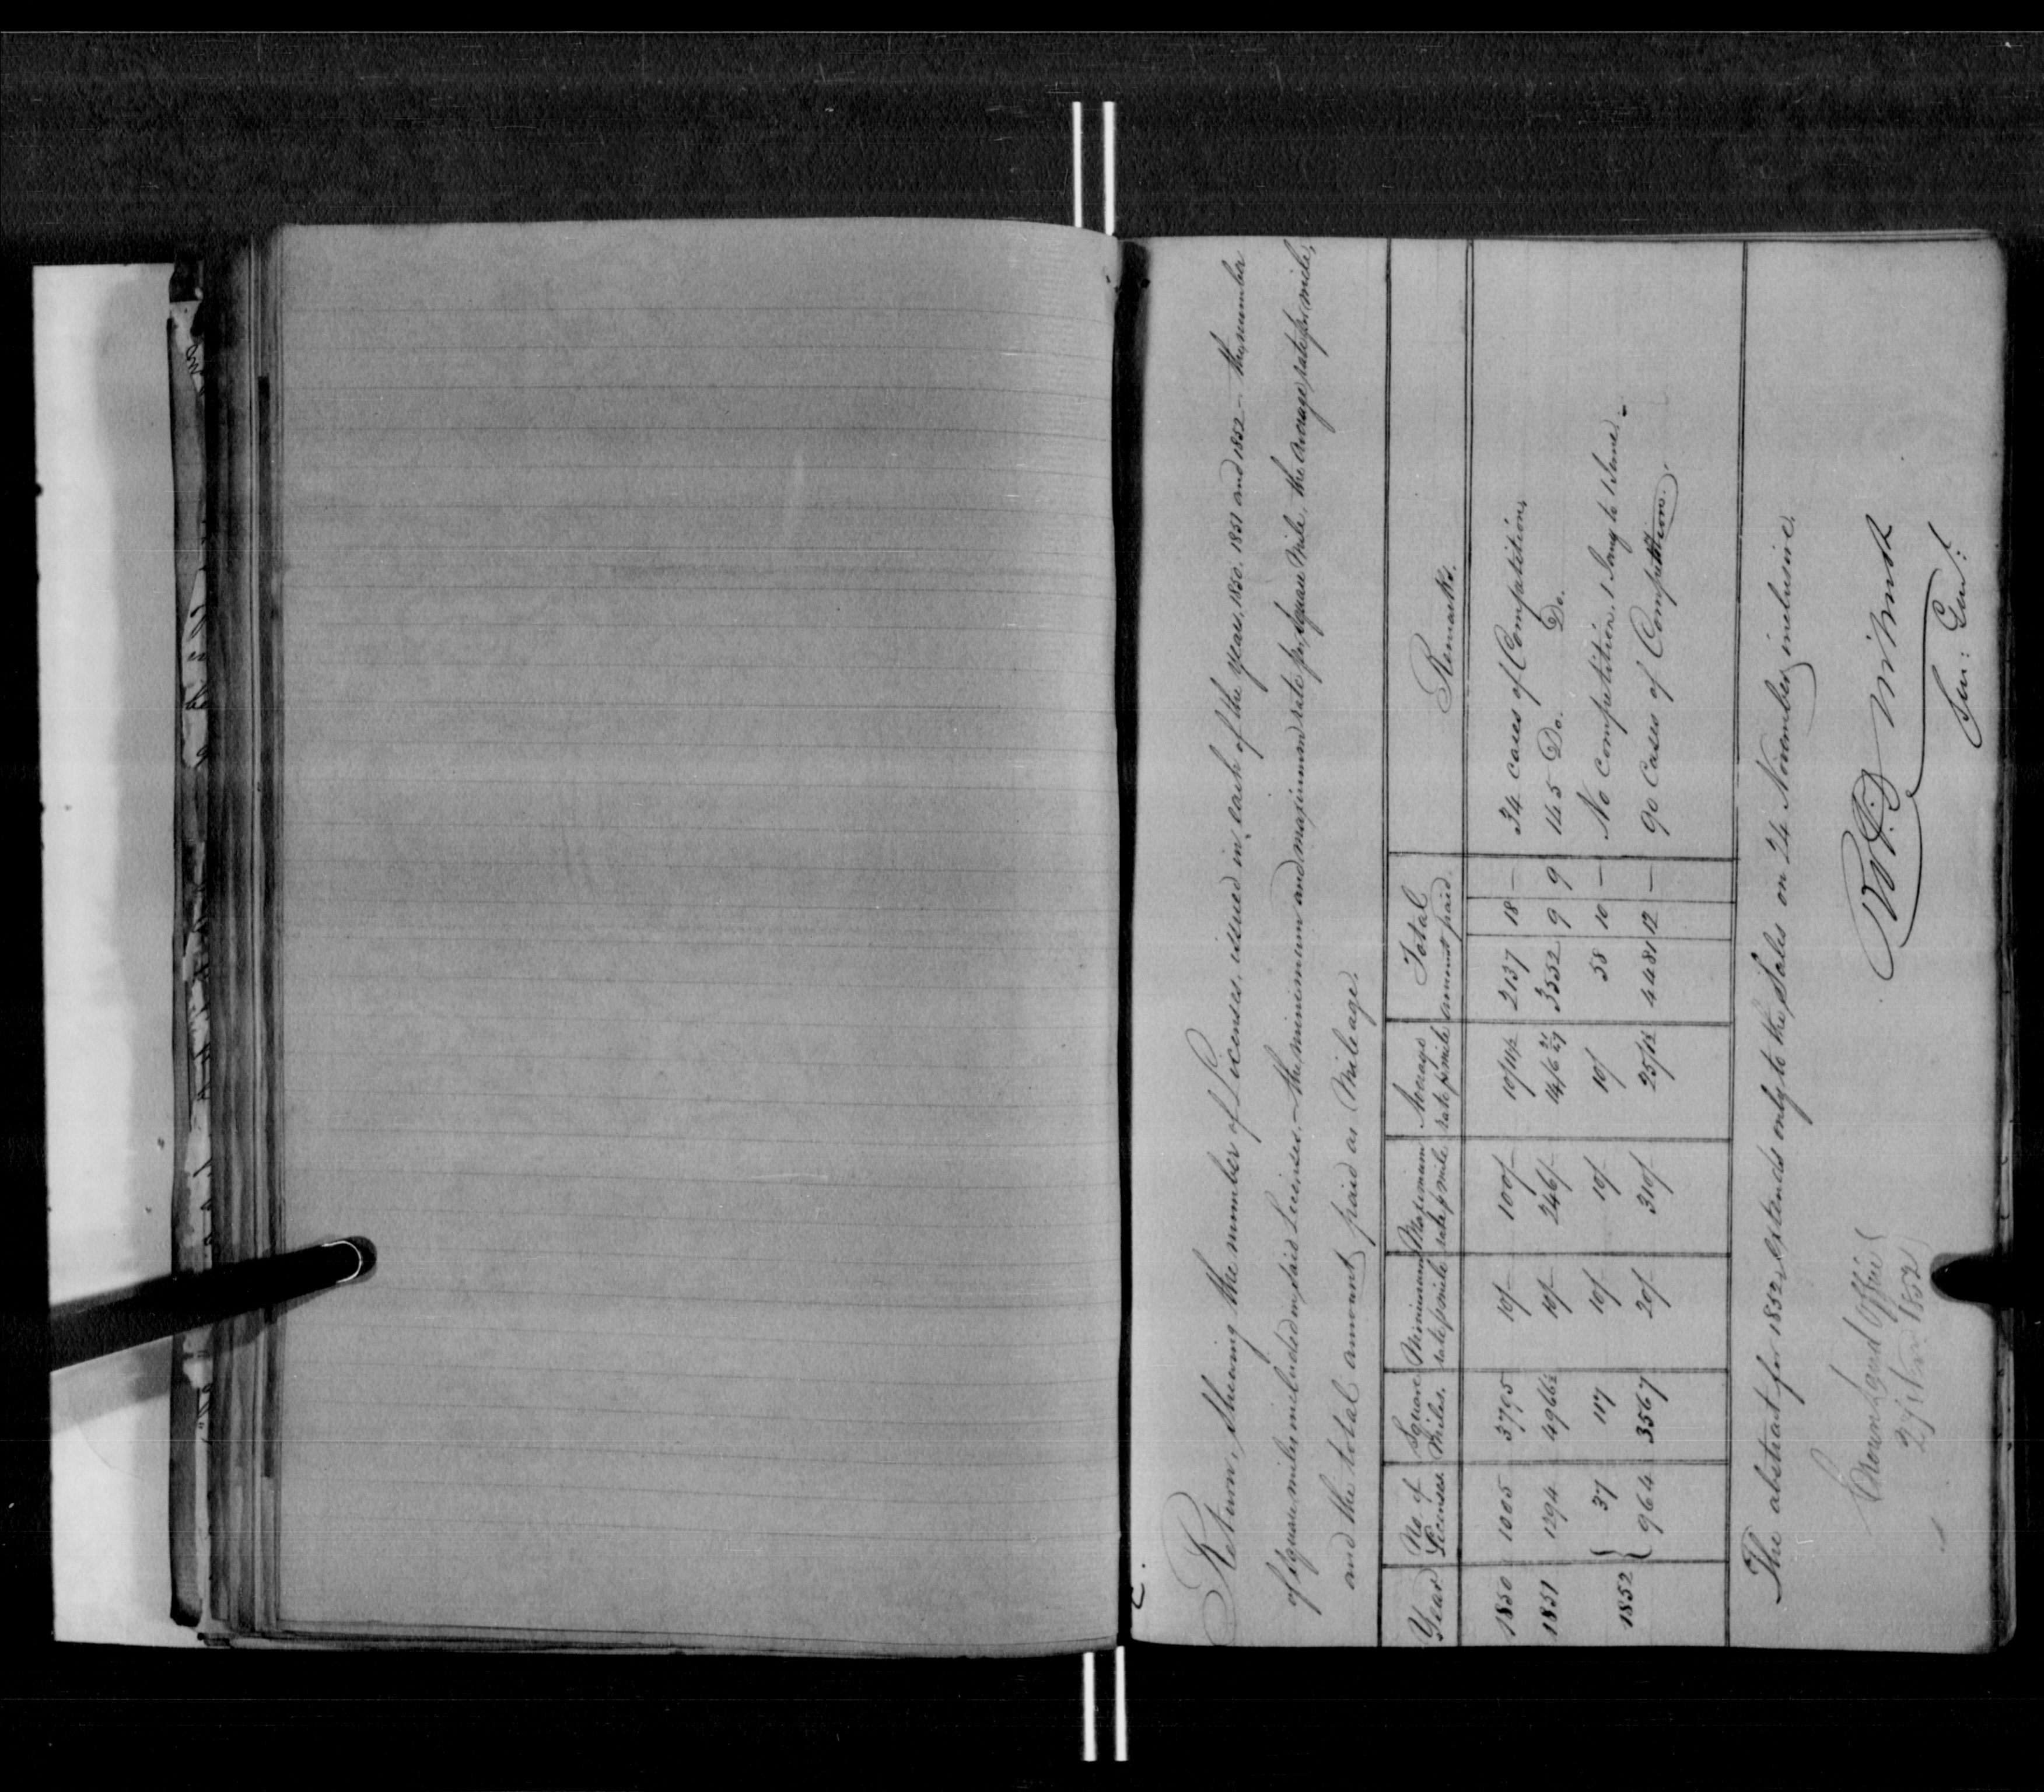 C.
Return, shewing the number of Licenses, issued in each of the years, 1850, 1851 and 1852 — the number
of square miles included in said Licenses, — the minimum and maximum rate pr. Square Mile, the average rate pr. mile,
and the total amount paid as Mileage.
Year | No. of Licenses | Square Miles. | Minimum rate p mile | Maximum rate p mile | Average rate p mile | Total amount paid. | Remarks.
1850 | 1005 | 3795 | 10/- | 100/- | 10/11½ | 2137 | 18 | — | 34 cases of Competition,
1851 | 1294 | 4966½ | 10/- | 246/- | 14/6 | 3552 | 9 | 9 | 145 Do. Do.
1852 { 37 | 117 | 10/- | 10/- | 10/ | 58 | 10 | — | No competition. 1 Jany to 1 June. -
{ 964 | 3567 | 20/- | 310/- | 25/1½ | 4481 | 12 | — | 90 Cases of Competition.
The abstract for 1852, extends only to the Sales on 24 November, inclusive.
Crown Land Office
27 Novr 1852
Sur: Genl: